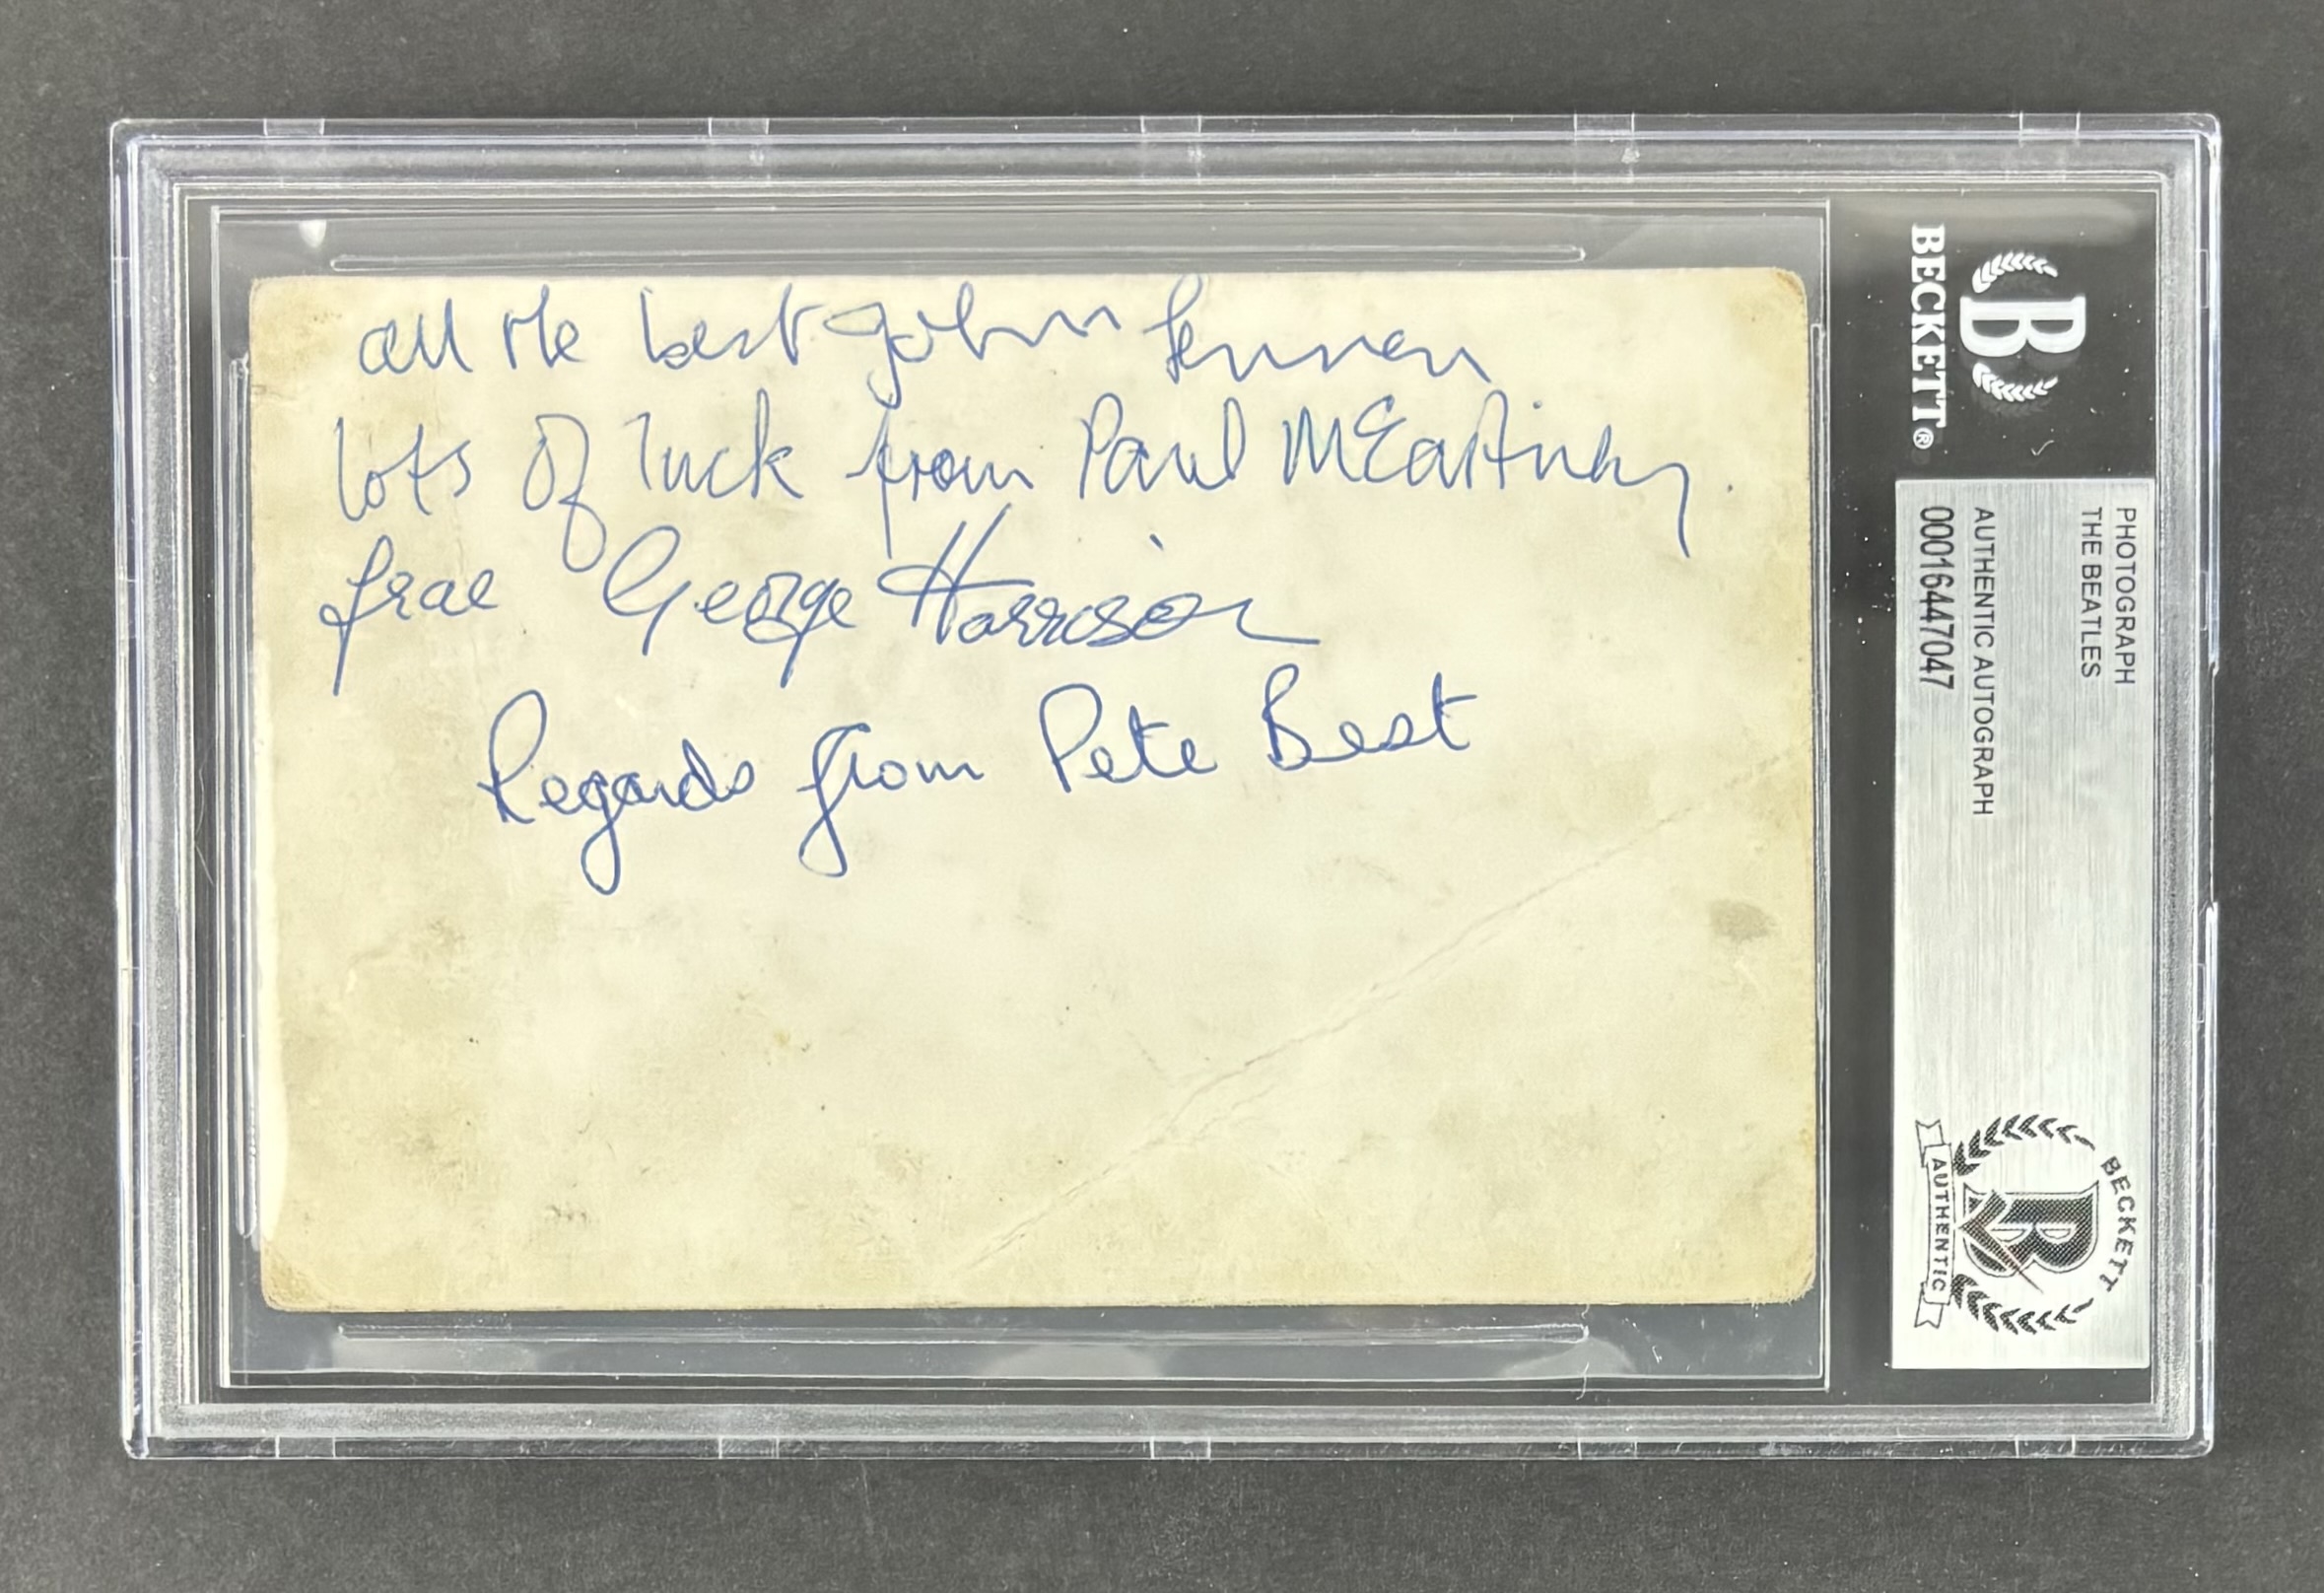 all the best John Lennon
lots of luck from Paul McCartney.
frae George Harrison
Regards from Pete Best
BECKETT®
B
PHOTOGRAPH
THE BEATLES
AUTHENTIC AUTOGRAPH
00016447047
BECKETT
B
AUTHENTIC